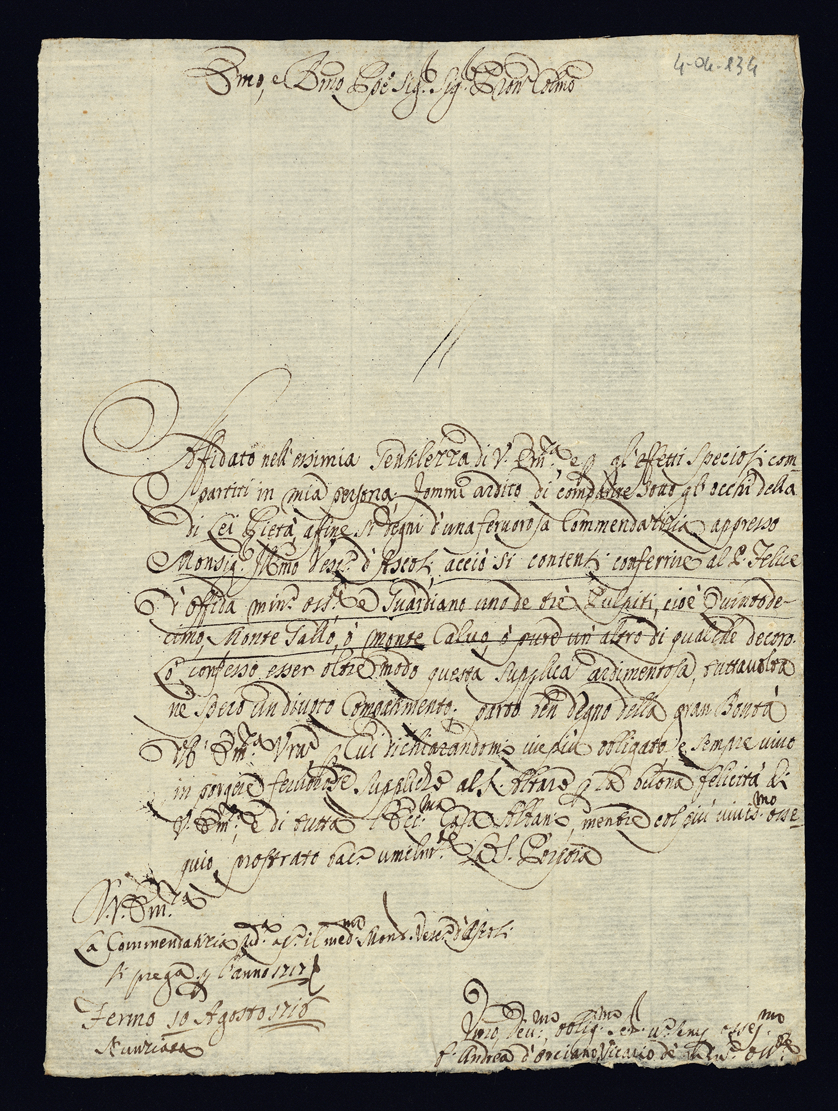 4-de-134
Emo, e Rmo Pre Sig.r Sig.r Pron Colmo
Affidato nell'essimia Gentilezza di V. Em.za e p gl'effetti speciosi com-
partiti in mia persona, sommi ardito di comparire sotto gl'occhi della
di Lei Pietà, affine si degni d'una fervorosa Commendatitia appresso
Monsig.r Illmo Vesc.o d'Ascoli, acciò si contenti conferire al P. Felice
d'Offida min.r oss.te e Guardiano uno de trè Pulpiti, cioè Quintode-
cimo, Monte Gallo, ò Monte Calvo, ò pure un'altro di qualche decoro.
Confesso esser oltre modo questa supplica ardimentosa, tuttavolta
ne spero un divoto Compatimento, parto ben degno della gran Bontà
dell' Em.za Vra, à Cui dichiarandomi vie più obligato, e sempre vivo
in porgere fervorose suppliche al S. Altare p la buona felicità di
V. Em.za, e di tutta l'Ecc.ma Casa Albani, mentre col più vivis.mo osse-
quio, prostrato bac. umilm.te la S. Porpora
Di V. Em.za
La Commendatitia
si prega p l'anno 1717
Fermo 10 Agosto 1716
Nunziata
Umo, Dev.mo, oblig.mo
f. Andrea d'Orciano Vicario